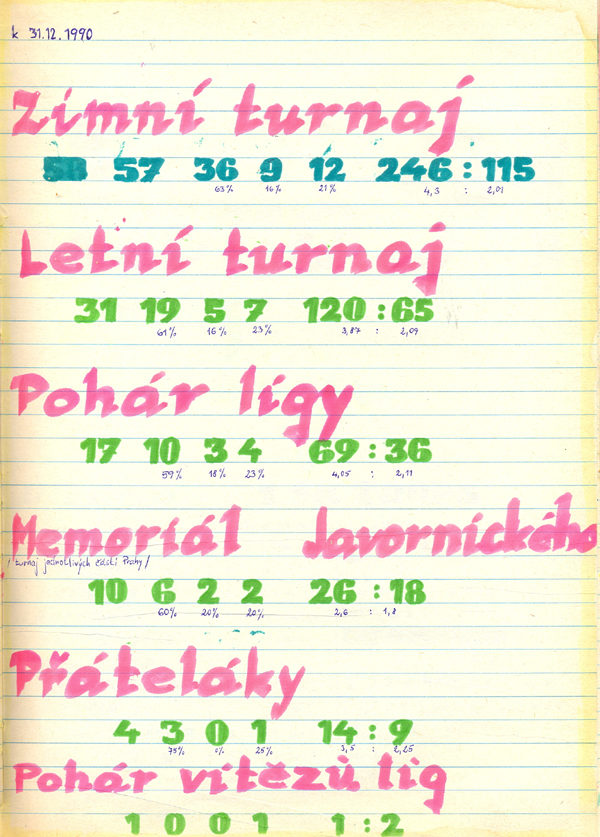 k 31.12.1990
Zimní turnaj
57 36 9 12 246 : 115
63% 16% 21% 4,3 : 2,01
Letní turnaj
31 19 5 7 120 : 65
61% 16% 23% 3,87 : 2,09
Pohár ligy
17 10 3 4 69 : 36
59% 18% 23% 4,05 : 2,11
Memoriál Javornického
/ turnaj jednotlivých částí Prahy /
10 6 2 2 26 : 18
60% 20% 20% 2,6 : 1,8
Přáteláky
4 3 0 1 14 : 9
75% 0% 25% 3,5 : 2,25
Pohár vítězů lig
1 0 0 1 1 : 2